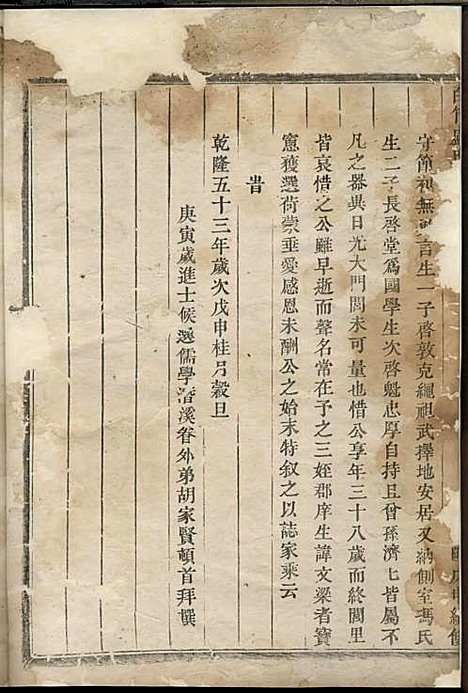 守節和無言生一子啓敦克繩祖武擇地安居又納側室馮氏
生二子長啓堂爲國學生次啓魁忠厚自持且曾孫濟七皆屬不
凡之器異日光大門閭未可量也惜公享年三十八歲而終閭里
皆哀惜之公雖早逝而聲名常在予之三姪郡庠生諱文梁者寶
窻獲選荷蒙垂愛感恩未酬公之始末特叙之以誌家乘云
旹
乾隆五十三年歲次戊申桂月穀旦
庚寅歲進士候選儒學溪眷外弟胡家賢頓首拜撰